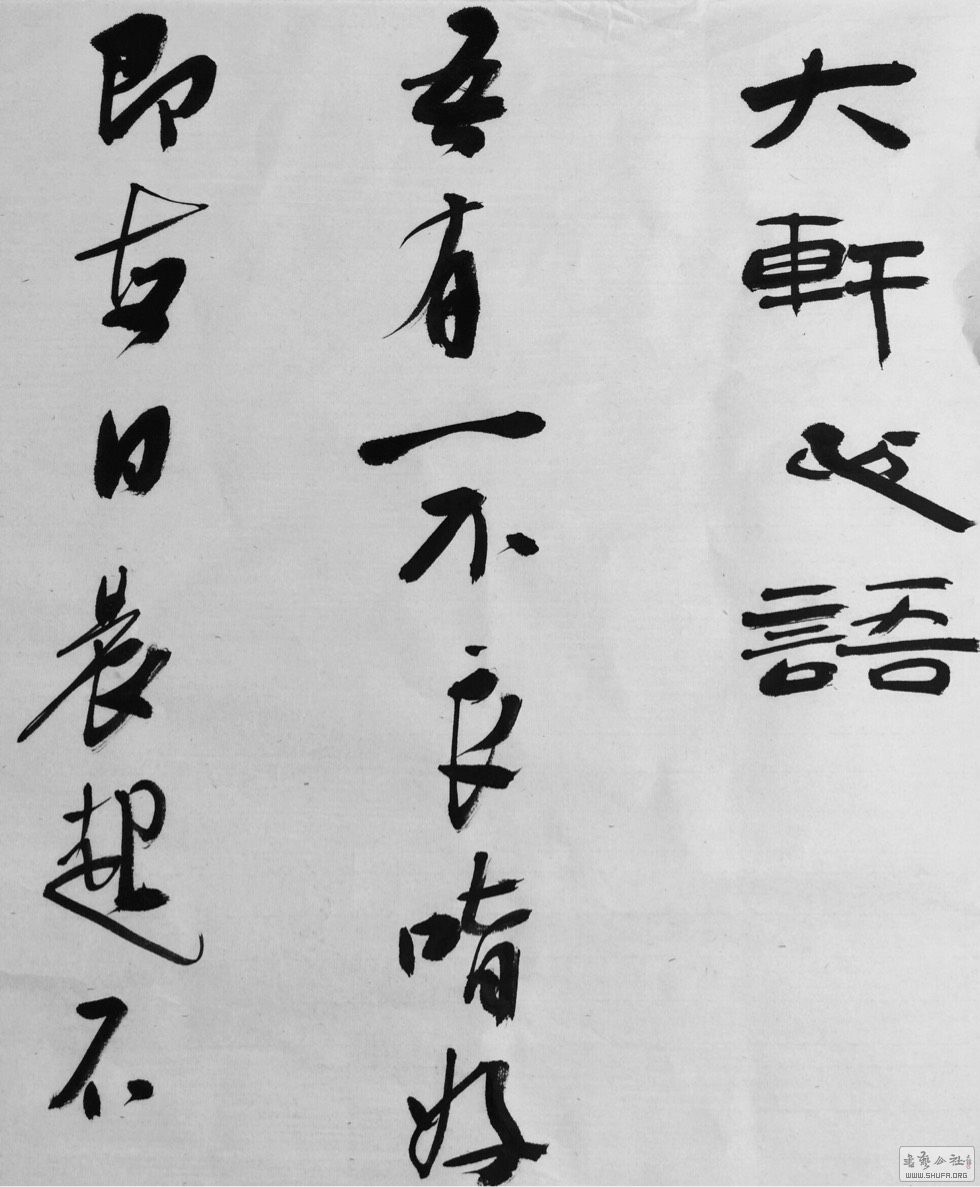 大軒心語
吾有一不良嗜好
即日晨起不
書藝公社
WWW.SHUFA.ORG